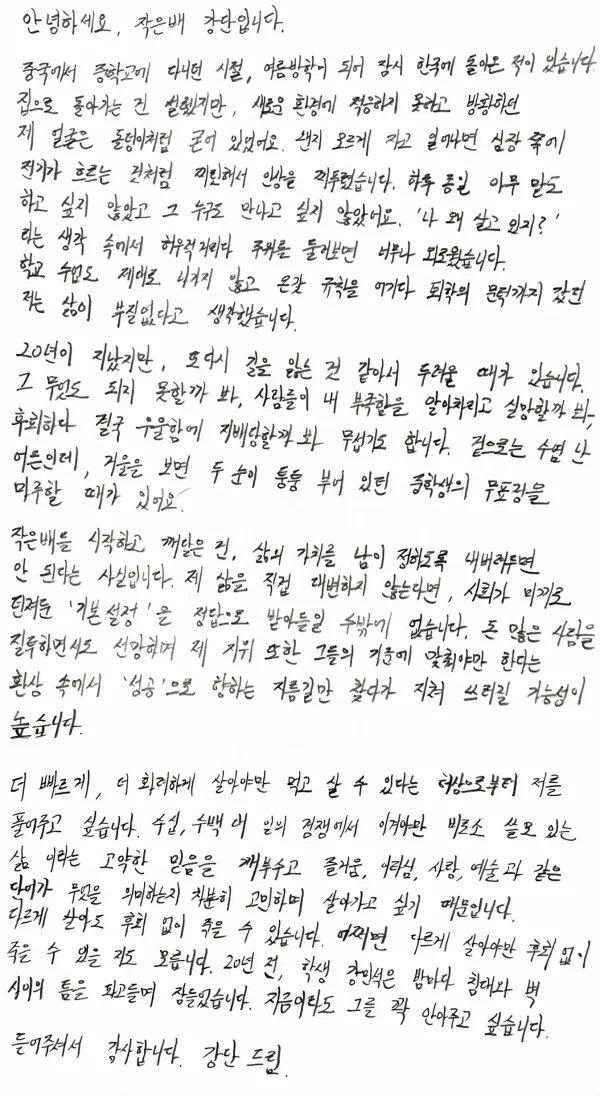 안녕하세요, 작은배 강단입니다.
중국에서 중학교에 다니던 시절, 여름방학이 되어 잠시 한국에 돌아온 적이 있습니다.
집으로 돌아가는 건 설렜지만, 새로운 환경에 적응하지 못하고 방황하던
제 얼굴은 돌덩이처럼 굳어 있었어요. 왠지 모르게 자고 일어나면 심장 쪽에
전기가 흐르는 것처럼 찌릿해서 인상을 찌푸렸습니다. 하루 종일 아무 말도
하고 싶지 않았고 그 누구도 만나고 싶지 않았어요. '나 왜 살고 있지?'
라는 생각 속에서 허우적거리다 주위를 둘러보면 너무나 외로웠습니다.
학교 수업도 제대로 나가지 않고 온갖 규칙을 어기다 퇴학의 문턱까지 갔던
저는 삶이 부질없다고 생각했습니다.
20년이 지났지만, 또다시 길을 잃는 것 같아서 두려울 때가 있습니다.
그 무엇도 되지 못할까 봐, 사람들이 내 부족함을 알아차리고 실망할까 봐,
후회하다 결국 우울함에 지배당할까 봐 무섭기도 합니다. 겉으로는 수염 난
어른인데, 거울을 보면 두 눈이 퉁퉁 부어 있던 중학생의 무표정을
마주할 때가 있어요.
작은배를 시작하고 깨달은 건, 삶의 가치를 남이 정하도록 내버려두면
안 된다는 사실입니다. 제 삶을 직접 대변하지 않는다면, 사회가 미끼로
던져둔 '기본 설정'을 정답으로 받아들일 수밖에 없습니다. 돈 많은 사람을
질투하면서도 선망하며 제 지위 또한 그들의 기준에 맞춰야만 한다는
환상 속에서 '성공'으로 향하는 지름길만 찾다가 지쳐 쓰러질 가능성이
높습니다.
더 빠르게, 더 화려하게 살아야만 먹고 살 수 있다는 허상으로부터 저를
풀어주고 싶습니다. 수십, 수백 대 일의 경쟁에서 이겨야만 비로소 쓸모 있는
삶 이라는 고약한 믿음을 깨부수고 즐거움, 이타심, 사랑, 예술과 같은
단어가 무엇을 의미하는지 차분히 고민하며 살아가고 싶기 때문입니다.
다르게 살아도 후회 없이 죽을 수 있습니다. 어쩌면 다르게 살아야만 후회 없이
죽을 수 있을 지도 모릅니다. 20년 전, 학생 강민석은 밤마다 침대와 벽
사이의 틈을 파고들며 잠들었습니다. 지금이라도 그를 꽉 안아주고 싶습니다.
들어주셔서 감사합니다. 강단 드림.